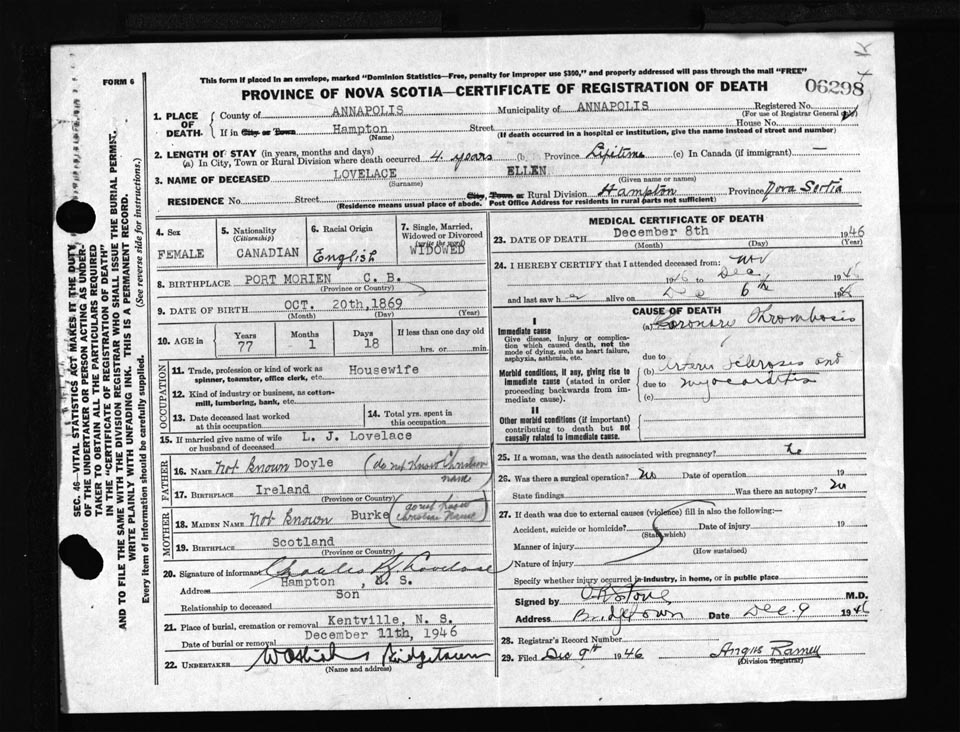 FORM 6
This form if placed in an envelope, marked "Dominion Statistics—Free, penalty for improper use $300," and properly addressed will pass through the mail "FREE"
PROVINCE OF NOVA SCOTIA—CERTIFICATE OF REGISTRATION OF DEATH
06298
1. PLACE OF DEATH.
County of ANNAPOLIS Municipality of ANNAPOLIS Registered No.
(For use of Registrar General only)
If in City or Town Hampton Street House No.
(Name) (If death occurred in a hospital or institution, give the name instead of street and number)
2. LENGTH OF STAY (in years, months and days)
(a) In City, Town or Rural Division where death occurred 4 years (b) Province Lifetime (c) In Canada (if immigrant) —
3. NAME OF DECEASED LOVELACE ELLEN
(Surname) (Given name or names)
RESIDENCE No. Street City, Town or Rural Division Hampton Province Nova Scotia
(Residence means usual place of abode. Post Office Address for residents in rural parts not sufficient)
4. Sex
FEMALE
5. Nationality
(Citizenship)
CANADIAN
6. Racial Origin
English
7. Single, Married, Widowed or Divorced
(write the word)
WIDOWED
8. BIRTHPLACE PORT MORIEN C. B.
(Province or Country)
9. DATE OF BIRTH OCT. 20th, 1869
(Month) (Day) (Year)
10. AGE in
Years 77
Months 1
Days 18
If less than one day old
hrs. or min.
OCCUPATION
11. Trade, profession or kind of work as Housewife
spinner, teamster, office clerk, etc.
12. Kind of industry or business, as cotton-
mill, lumbering, bank, etc.
13. Date deceased last worked
at this occupation
14. Total yrs. spent in
this occupation
15. If married give name of wife
or husband of deceased L. J. Lovelace
FATHER
16. NAME Not known Doyle (do not know Christian name)
17. BIRTHPLACE Ireland
(Province or Country)
MOTHER
18. MAIDEN NAME Not known Burke (do not know Christian Name)
19. BIRTHPLACE Scotland
(Province or Country)
20. Signature of informant Charles Lovelace
Address Hampton, N. S.
Relationship to deceased Son
21. Place of burial, cremation or removal Kentville, N. S.
Date of burial or removal December 11th, 1946
22. UNDERTAKER Bridgetown
(Name and address)
MEDICAL CERTIFICATE OF DEATH
23. DATE OF DEATH December 8th 1946
(Month) (Day) (Year)
24. I HEREBY CERTIFY that I attended deceased from: Nov
1946 to Dec 1946
and last saw her alive on Dec 6th 1946
CAUSE OF DEATH
I
Immediate cause
Give disease, injury or complica-
tion which caused death, not the
mode of dying, such as heart failure,
asphyxia, asthenia, etc.
(a) Coronary Thrombosis
due to
Morbid conditions, if any, giving rise to
immediate cause (stated in order
proceeding backwards from
immediate cause).
(b) Arterio sclerosis and
due to myocarditis
(c)
II
Other morbid conditions (if important)
contributing to death but not
causally related to immediate cause.
25. If a woman, was the death associated with pregnancy? no
26. Was there a surgical operation? no Date of operation 19
State findings Was there an autopsy? no
27. If death was due to external causes (violence) fill in also the following:—
Accident, suicide or homicide? Date of injury 19
(State which)
Manner of injury
(How sustained)
Nature of injury
Specify whether injury occurred in industry, in home, or in public place
Signed by M.D.
Address Bridgetown Date Dec. 9 1946
28. Registrar's Record Number
29. Filed Dec 9th 1946 Angus Ramey
(Division Registrar)
SEC. 46—VITAL STATISTICS ACT MAKES IT THE DUTY
OF THE UNDERTAKER OR PERSON ACTING AS UNDER-
TAKER TO OBTAIN ALL THE PARTICULARS REQUIRED
IN THE "CERTIFICATE OF REGISTRATION OF DEATH"
AND TO FILE THE SAME WITH THE DIVISION REGISTRAR WHO SHALL ISSUE THE BURIAL PERMIT.
WRITE PLAINLY WITH UNFADING INK. THIS IS A PERMANENT RECORD.
Every item of information should be carefully supplied. (See reverse side for instructions.)